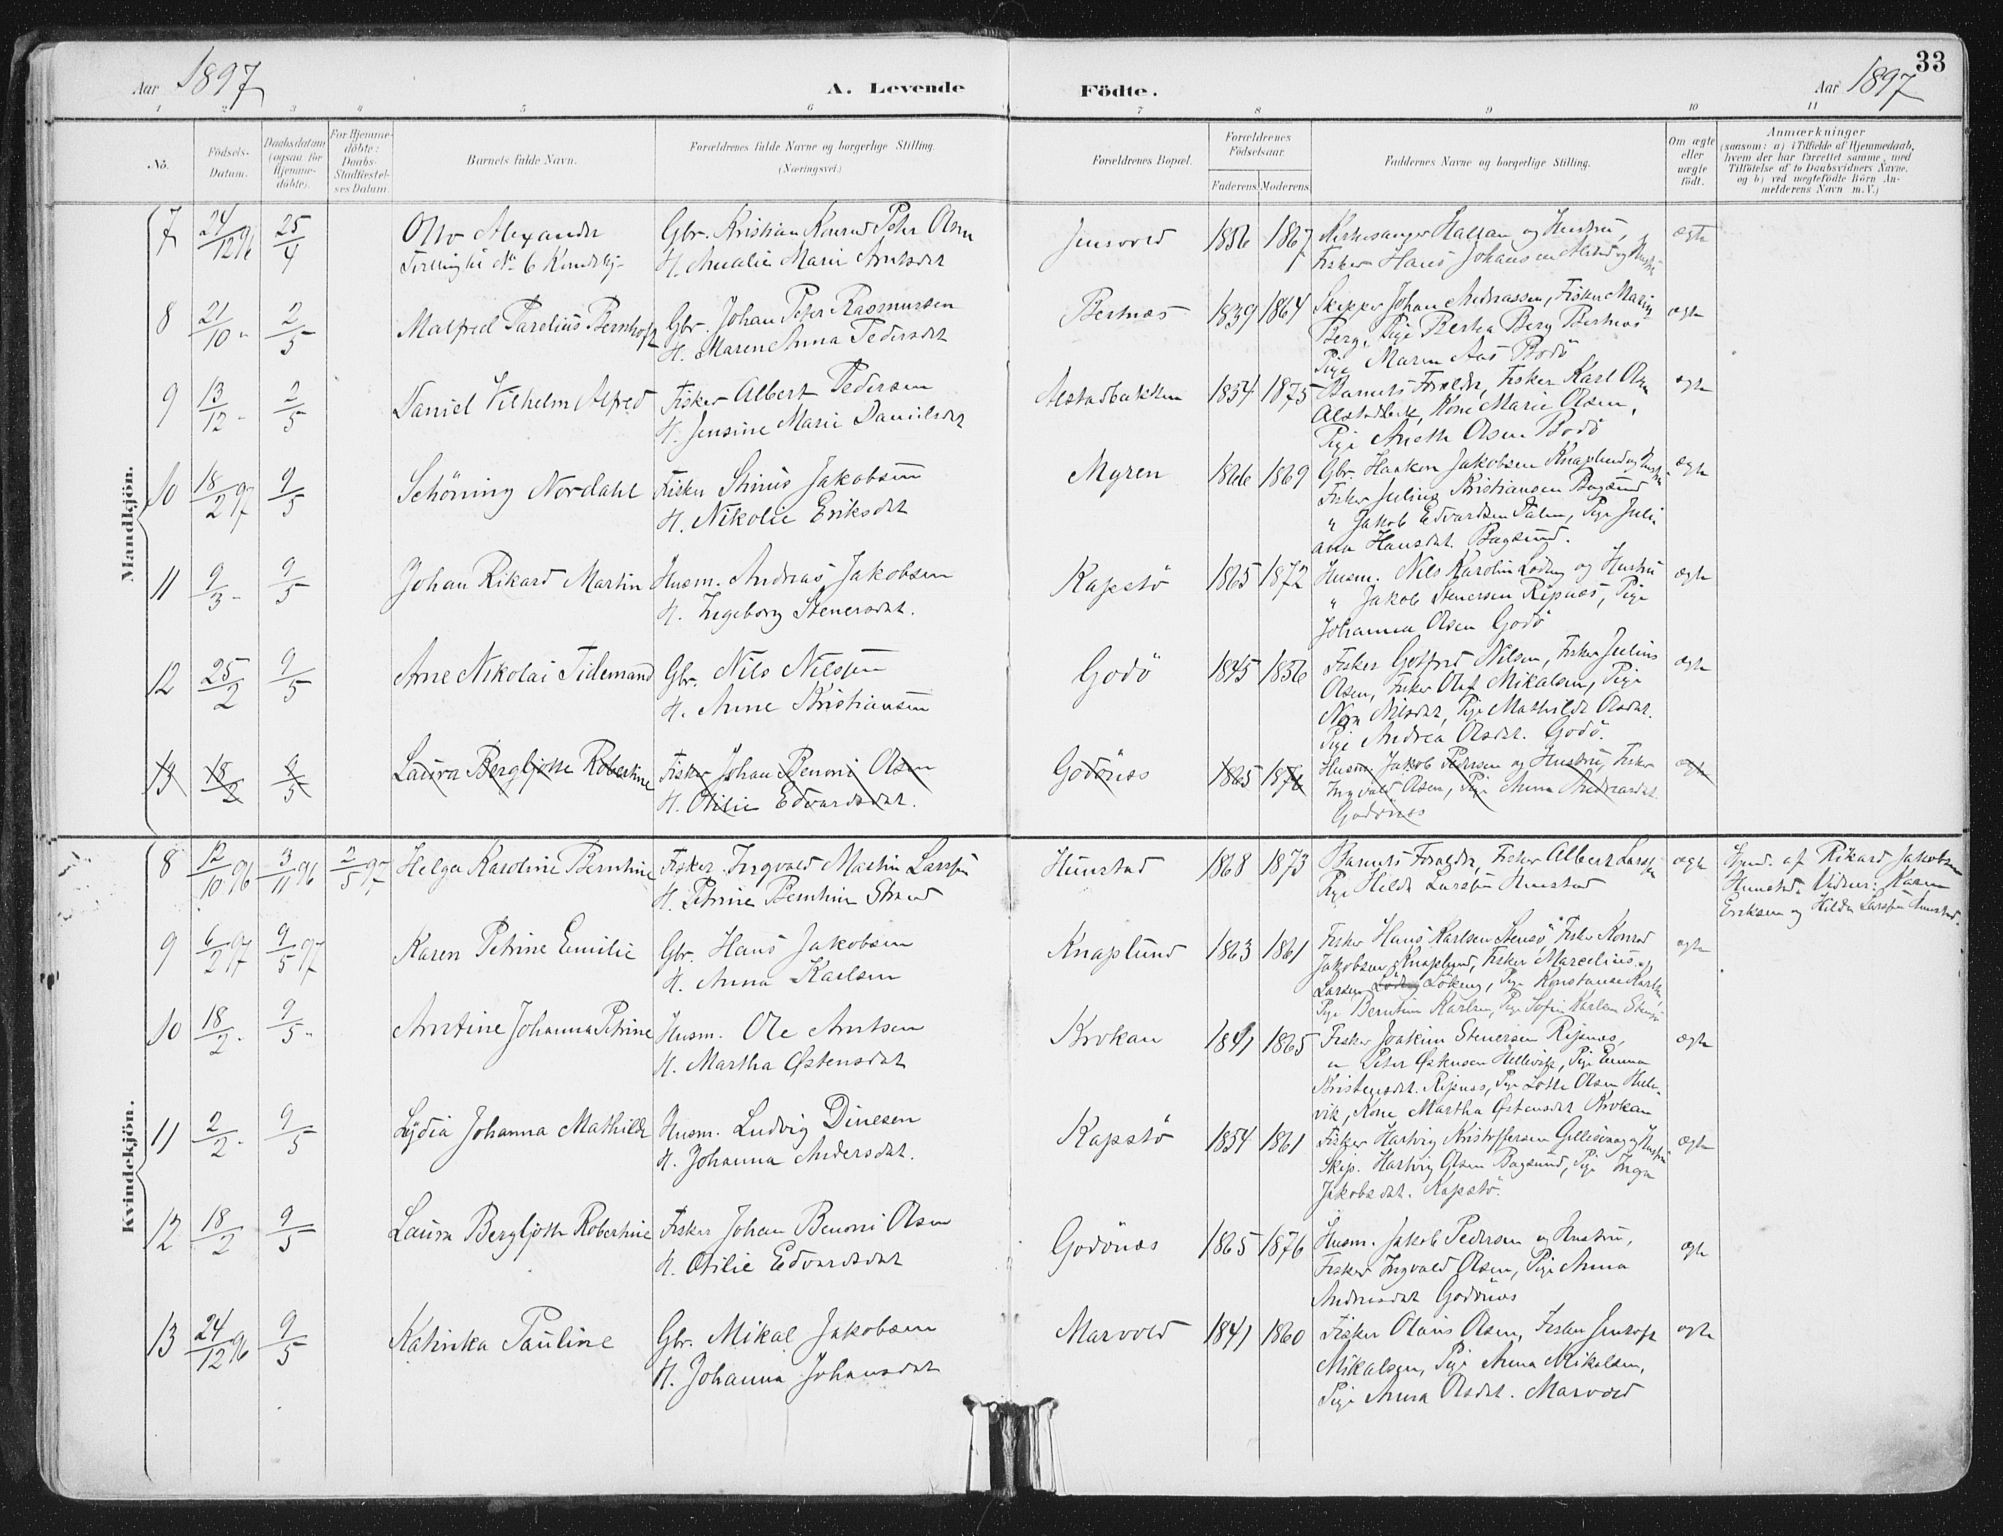 33
Aar 1897
A. Levende Födte.
Aar 1897
1 2 3 4 5 6 7 8 9 10 11
No.
Födsels-Datum.
Daabsdatum (ogsaa for Hjemmedöbte).
For Hjemmedöbte: Daabs-Stadfæstelses Datum.
Barnets fulde Navn.
Forældrenes fulde Navne og borgerlige Stilling.
(Næringsvei.)
Forældrenes Bopæl.
Forældrenes Födselsaar.
Faderens. Moderens.
Faddernes Navne og borgerlige Stilling.
Om ægte eller uægte födt.
Anmærkninger
(saasom: a) i Tilfælde af Hjemmedaab, hvem der har forrettet samme, med Tilföielse af to Daabsvidners Navne, og b) ved uægtefödte Börn Anmelderens Navn m. V.)
Mandkjön.
7 24/12 96 25/4 Otto Alexander Gbr. Kristian Konrad Peter Olsen Jensvold 1856 1867 Kirkesanger Hallan og Hustru, ægte
Tvilling til No 6 Kvindekj- H. Amalie Marie Arntsdat Fisker Hans Johansen Alstad og Hustru
8 21/10 - 2/5 Malfred Parelius Bernhoft Gbr. Johan Peter Rasmussen Bertnæs 1839 1864 Skipper Johan Andreassen, Fisker Martin ægte
H. Maren Anna Pedersdat Berg, Pige Berta Berg Bertnæs
Pige Maren Aas Bodö
9 13/12 - 2/5 Daniel Vilhelm Alfred Fisker Albert Pedersen Alstadbakken 1854 1875 Barnets Forældre, Fisker Karl Olsen ægte
H. Jensine Marie Danielsdat Alstadbak, Kone Marie Olsen,
Pige Aneth Olsen Bodö
10 18/2 97 9/5 Schöning Nordahl Fisker Stinus Jakobsen Myren 1866 1869 Gbr. Haakon Jakobsen Knaplund og Hustru ægte
H. Nikolie Eriksdat Fisker Julius Kristiansen Bagsund
" Jakob Edvardsen Valen, Pige Juli-
ana Hansdat. Bagsund.
11 9/3 - 9/5 Johan Rikard Martin Husm. Andreas Jakobsen Kapstö 1865 1872 Husm. Nils Karolin Löding og Hustru ægte
H. Ingeborg Stenersdat. " Jakob Stenersen Ripnæs, Pige
Johanna Olsen Godö
12 25/2 9/5 Arne Nikolai Tidemand Gbr. Nils Nilssen Godö 1845 1856 Fisker Gotfred Nilsen, Fisker Julius ægte
H. Anne Kristiansen Olsen, Fisker Olaf Mikalsen, Pige
Nora Nilsdat, Pige Mathilde Olsdat.
Pige Andrea Olsdat. Godö.
13 18/2 9/5 Laura Bergljotte Robertine Fisker Johan Benoni Olsen Godönæs 1865 1876 Husm Jakob Pedersen og Hustru, Fisker ægte
H. Otilie Edvardsdat. Ingvald Olsen, Pige Anna Andreasdat.
Godönæs
Kvindekjön.
8 12/10 96 3/11 96 2/5 97 Helga Karoline Berntine Fisker Ingvald Martin Larssen Hunstad 1868 1873 Barnets Forældre, Fisker Albert Larssen ægte Hjmd. af Rikard Jakobsen
H. Petrine Berntine Strand Pige Hilda Larssen Hunstad Hunstad. Vidner: Karen
Eriksen og Hilda Larssen Hunstad.
9 6/2 97 9/5 97 Karen Petrine Emilie Gbr. Hans Jakobsen Knaplund 1863 1861 Fisker Hans Karlsen Stensö, Fisker Konrad ægte
H. Anna Karlsen Jakobsen Knaplund, Fisker Marcelius
Larsen Löding Lökeng, Pige Konstanse Karlsen,
Pige Berntine Karlsen, Pige Sofie Karlsen Stensö
10 18/2 - 9/5 - Arntine Johanna Petrine Husm. Ole Arntsen Krokan 1841 1865 Fisker Joakim Stenersen Ripnæs, ægte
H. Martha Østensdat " Peter Østensen Hellevik, Pige Emma
Kristensdat. Ripnæs, Pige Lotte Olsen Helle-
vik, Kone Martha Østensdat Krokan
11 2/2 - 9/5 Lydia Johanna Mathilde Husm. Ludvig Dinesen Kapstö 1854 1861 Fisker Hartvig Kristoffersen Gillesvaag og Hustru ægte
H. Johanna Andersdat. Skip. Hartvig Olsen Bagsund, Pige Inga
Jakobsdat. Kapstö.
12 18/2 9/5 Laura Bergljotte Robertine Fisker Johan Benoni Olsen Godönæs 1865 1876 Husm. Jakob Pedersen og Hustru, ægte
H. Otilie Edvardsdat Fisker Ingvald Olsen, Pige Anna
Andreasdat Godönæs
13 24/12 96 9/5 Katinka Pauline Gbr. Mikal Jakobsen Marvold 1841 1860 Fisker Olaus Olsen, Fisker Jentoft ægte
H. Johanna Johansdat Mikalsen, Pige Anna Mikalsen,
Pige Anna Olsdat. Marvold